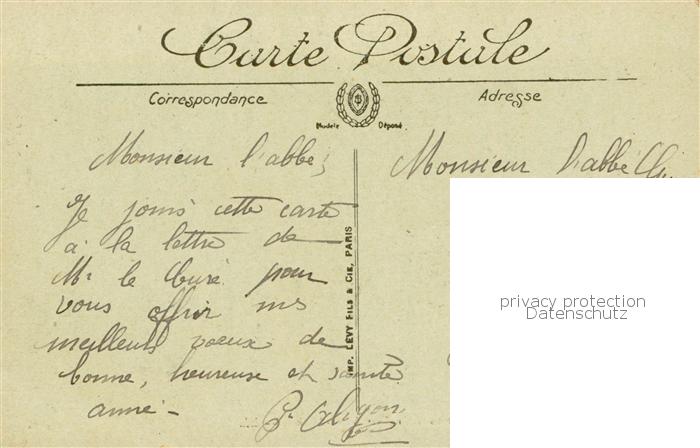 Carte Postale
Correspondance
Adresse
Modèle Déposé
Monsieur l'abbé,
Je joins cette carte
à la lettre de
Mr le Curé pour
vous offrir mes
meilleurs voeux de
bonne, heureuse et sainte
année -
IMP. LÉVY FILS & CIE, PARIS
Monsieur l'abbé
privacy protection
Datenschutz